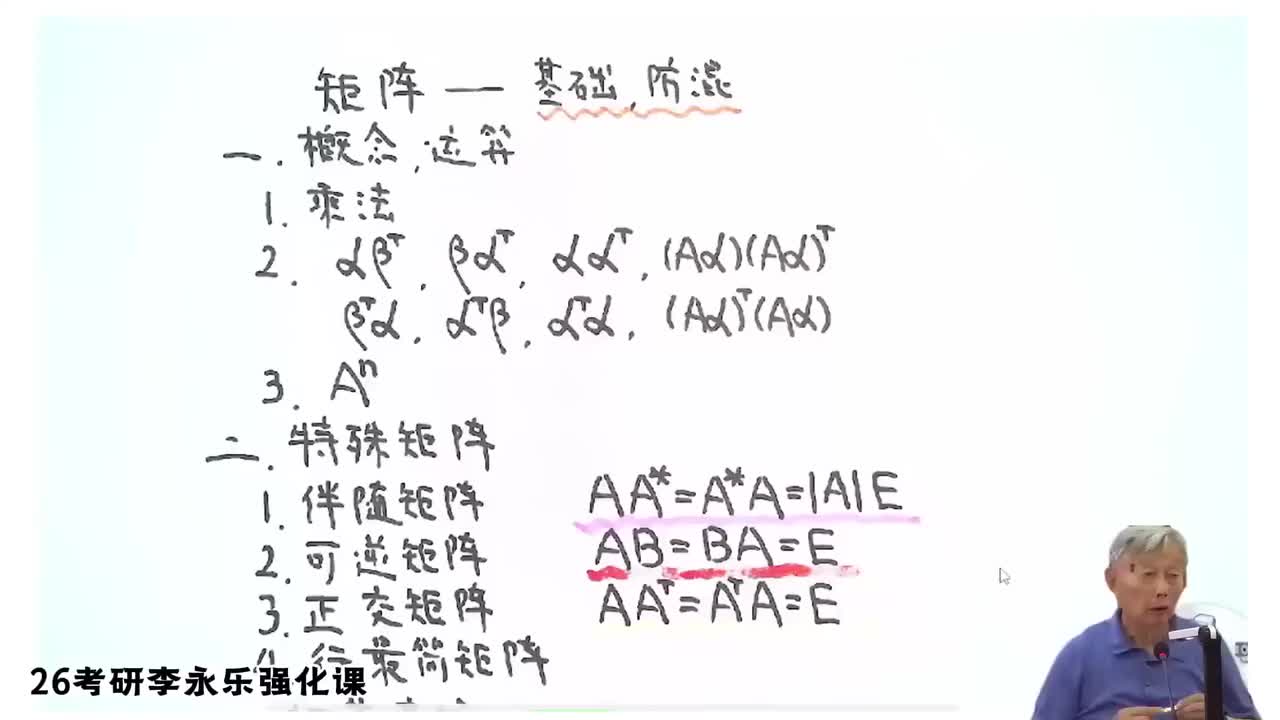 矩阵 — 基础,防混
一.概念,运算
1.乘法
2. αβᵀ, βαᵀ, ααᵀ, (Aα)(Aα)ᵀ
βᵀα, αᵀβ, αᵀα, (Aα)ᵀ(Aα)
3. Aⁿ
二.特殊矩阵
1.伴随矩阵 AA*=A*A=|A|E
2.可逆矩阵 AB=BA=E
3.正交矩阵 AAᵀ=AᵀA=E
4.行最简矩阵
26考研李永乐强化课